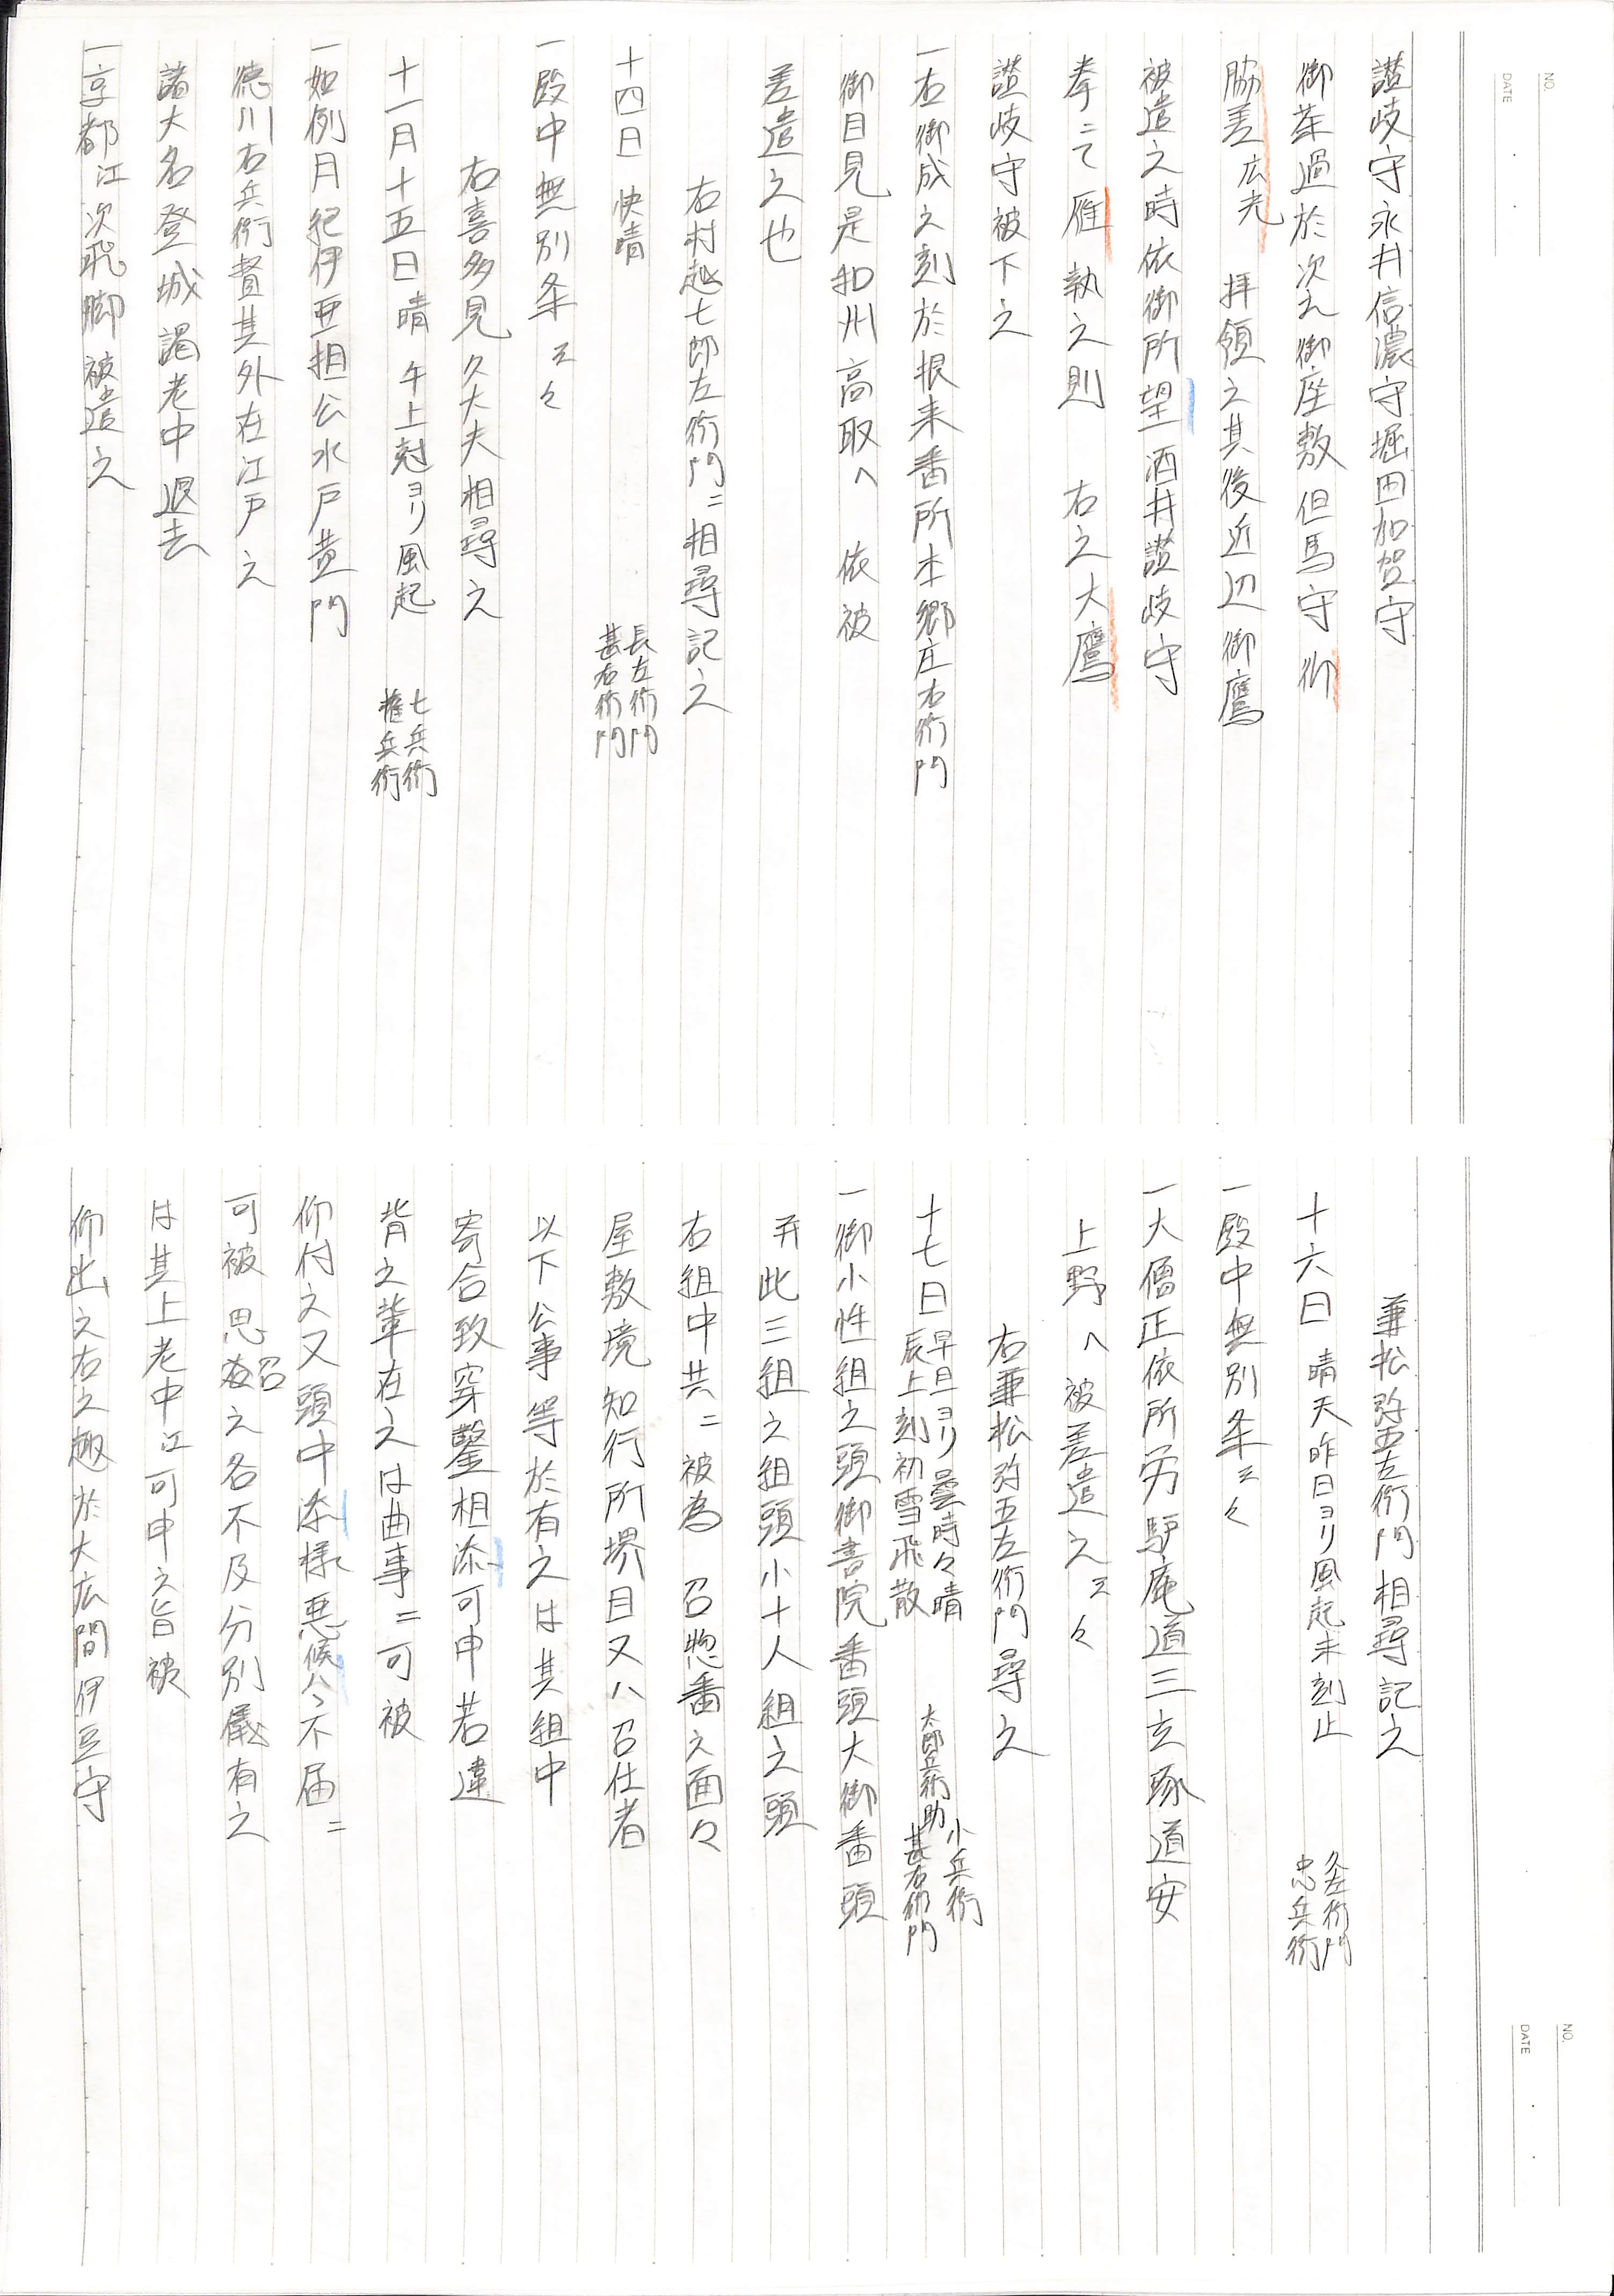 NO.
DATE
讃岐守永井信濃守堀田加賀守
御茶過於次之御座敷但馬守御
脇差広光 拝領之其後近辺御鷹
被遣之時依御所望酒井讃岐守
拳ニて雁執之則 右之大鷹
讃岐守被下之
一右御成之刻於根来番所本郷庄右衛門
御目見是和州高取へ 依被
差遣之也
右村越七郎左衛門ニ相尋記之
十四日 快晴 長左衛門 甚右衛門
一殿中無別条云々
右喜多見久大夫相尋之
十一月十五日晴 午上刻ヨリ風起 七兵衛 権兵衛
一如例月紀伊亜相公水戸黄門
徳川右兵衛督其外在江戸之
諸大名登城謁老中退去
一京都江次飛脚被遣之
NO.
DATE
兼松弥五左衛門相尋記之
十六日 晴天昨日ヨリ風起未刻止 久左衛門 忠兵衛
一殿中無別条云々
一大僧正依所労驢庵道三玄琢道安
上野へ被差遣之云々
右兼松弥五左衛門尋之
十七日 早旦ヨリ曇時々晴 辰上刻初雪飛散 太郎兵衛助 小兵衛 甚右衛門
一御小性組之頭御書院番頭大御番頭
并此三組之組頭小十人組之頭
右組中共ニ被為 召惣番之面々
屋敷境知行所堺目又ハ召仕者
以下公事等於有之は其組中
寄合致穿鑿相添可申若違
背之輩在之は曲事ニ可被
仰付之又頭中添様悪候ハヽ不届ニ
可被 思召之各不及分別儀有之
は其上老中江可申之旨被
仰出之右之趣於大広間伊豆守